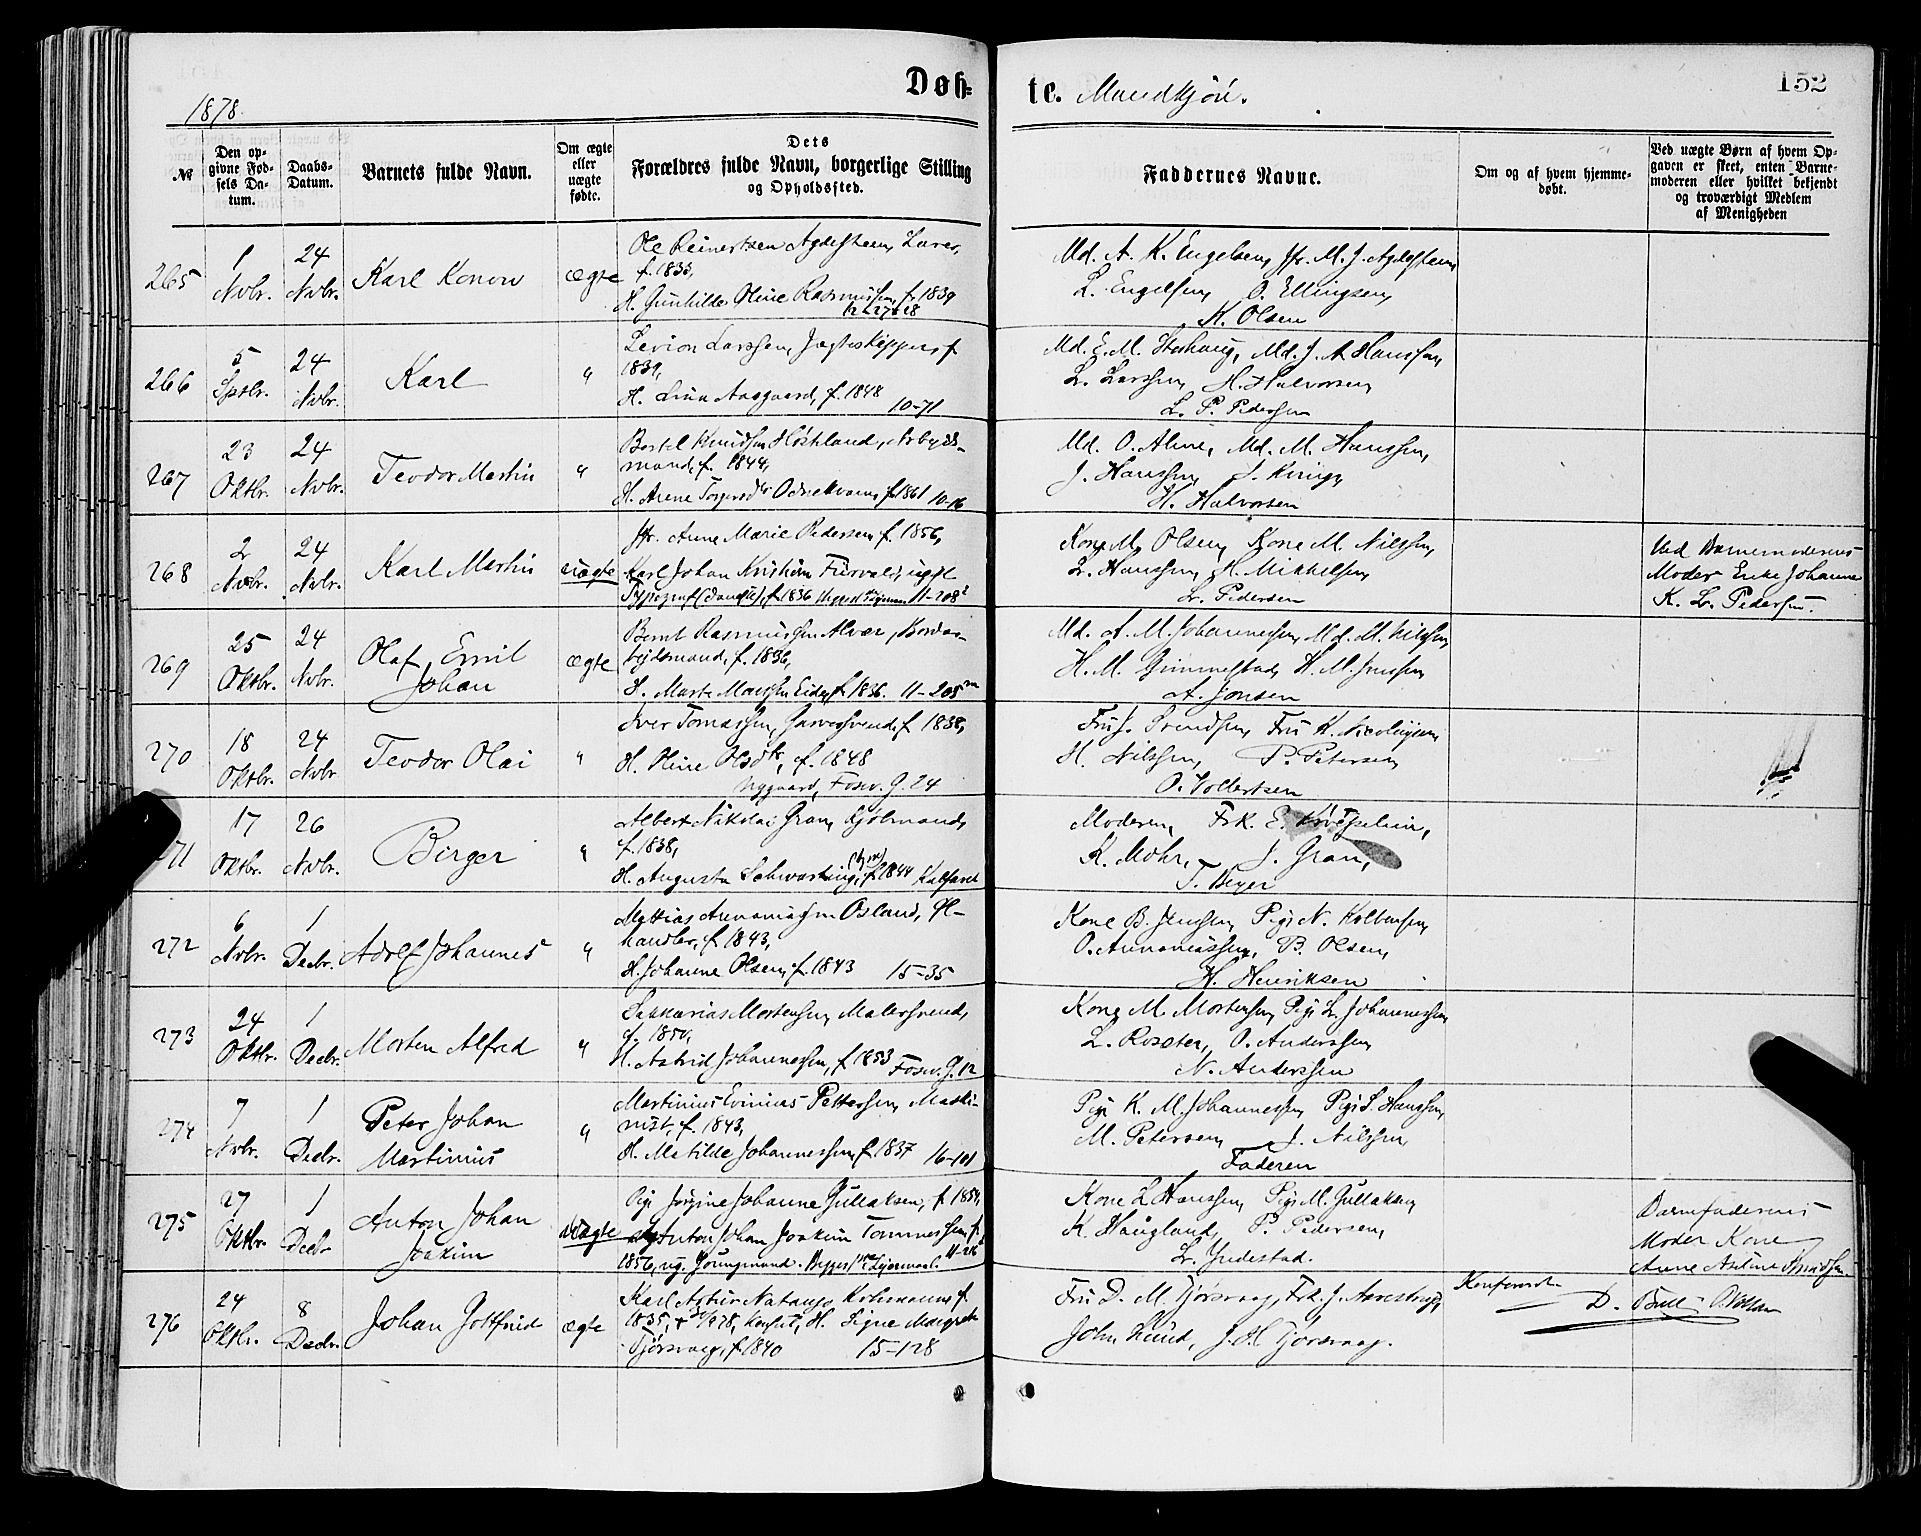 1878.
Døb-
te. Mandkjøn.
152
№
Den op-
givne Fød-
sels Da-
tum.
Daabs-
Datum.
Barnets fulde Navn.
Om ægte
eller
uægte
fødte.
Dets
Forældres fulde Navn, borgerlige Stilling
og Opholdssted.
Faddernes Navne.
Om og af hvem hjemme-
døbt.
Ved uægte Børn af hvem Op-
gaven er skeet, enten Barne-
moderen eller hvilket bekjendt
og troværdigt Medlem
af Menigheden
265
1
Nvbr.
24
Nvbr.
Karl Konow
ægte
Ole Reinertsen Agdestein,
f. 1835,
H. Gunhilde Oline Rasmussen, f. 1839
Md. A. K. Engelsen, Jfr. M. J. Agdestein
L. Engelsen, O. Ellingsen,
K. Olsen
266
5
Sptbr.
24
Nvbr.
Karl
"
Levion Larssen, Jægteskipper, f
1839,
H. Lina Aaggaard, f. 1848 10-71
Md. E. M. Md. J. A. Hanssen,
L. Larssen, H. Halvorsen,
L. P. Pedersen
267
23
Oktbr.
24
Nvbr.
Teodor Martin
"
Bertel Knudsen Høstland, Arbeids-
mand, f. 1844,
H. Arene Torgersdtr. Odnekvam, f. 1861 10-16
Md. O. Aline, Md. M. Hanssen,
J. Hanssen,
H. Halvorsen
268
2
Nvbr.
24
Nvbr.
Karl Martin
uægte
Jfr. Anne Marie Pedersen, f. 1856,
Karl Johan Kristian ugift
Typograf (dansk), f. 1836 11-208
Kone M. Olsen, Kone M. Nilssen,
L. Hanssen, H. Mikkelsen,
L. Pedersen
Ved Barnemoderens
Moder Enke Johanne
K. L. Pedersen.
269
25
Oktbr.
24
Nvbr.
Olaf Emil
Johan
ægte
Bernt Rasmussen Alver,
beidsmand, f. 1836,
H. Marte Monssen Eide, f. 1836. 11-205
Md. A. M. Johannessen, Md. M. Nilssen,
H. M. Gimmelstad, H. M. Jenssen,
A. Jonsen
270
18
Oktbr.
24
Nvbr
Teodor Olai
"
Iver Tomassen, Farversvend, f 1838,
H. Oline Olsdtr, f. 1848
Nygaard, Fosw. G. 24
Fru J. Svendsen, Fru K. Nicolaysen,
H. Nilssen, P. Petersen,
O. Vollertsen
271
17
Oktbr.
26
Nvbr.
Birger
"
Albert Nikolai Gran, Kjøbmand,
f. 1838,
H. Augusta f. 1844 Kalfaret
Moderen, Frk. E.
K. Mohr, J. Gran,
T. Beyer
272
6
Nvbr.
1
Decbr.
Adolf Johannes
"
Mattias Annaniassen Osland, H-
handler, f. 1843,
H. Johanne Olsen, f. 1843 15-35
Kone B. Jenssen, Pige N. Kolbensen,
O. Annaniassen, B. Olsen,
H. Henriksen
273
24
Oktbr.
1
Decbr.
Morten Alfred
"
Sakkarias Mortensen, Malersvend,
f. 1850,
H. Astrid Johannessen, f. 1853 Fosw. G. 12
Kone M. Mortensen, Pige L. Johannessen,
L. O. Anderssen,
N. Anderssen
274
7
Nvbr.
1
Decbr.
Peter Johan
Martinius
"
Martinius Evinius Pettersen, Maski-
nist, f. 1843,
H. Matilde Johannessen, f. 1837 16-101
Pige K. M. Johannessen, Pige S. Haugsen,
M. Petersen, J. Nilssen,
Faderen
275
27
Oktbr.
1
Decbr
Anton Johan
Joakim
uægte
Pige Jørgine Johanne Gullaksen, f. 1854,
Anton Johan Joakim Tommessen, f.
1856, ug.
Kone L Hanssen, Pige M. Gullaksen,
K. Haugland, P. Pedersen,
L. Yndestad.
Barnefaderens
Moder Kone
Anne
276
24
Oktbr.
8
Decbr.
Johan Gottfried
ægte
Karl Artur f.
1835, H. Signe Margrete
Tjørsvaag, f. 1840 15-128
Fru D. M. Tjørsvaag, Frk. J. Aarestrup,
John Lund, J. H. Tjørsvaag.
Konfereret
D. Bull